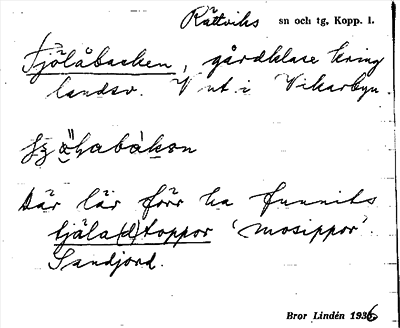 Rättviks sn och tg, Kopp. l.
Tjölåbacken, gårdklase kring
landsv. V ut i Vikarbyn.
Där lär förr ha funnits
tjäla(d)toppor 'mosippor'.
Sandjord.
Bror Lindén 1936